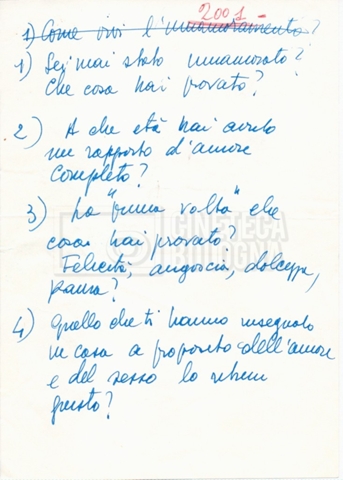 2001-
1) Come vivi l'innamoramento?
1) Sei mai stato innamorato?
Che cosa hai provato?
2) A che età hai avuto
un rapporto d'amore
completo?
3) La "prima volta" che
cosa hai provato?
Felicità, angoscia, dolcezza,
paura?
4) Quello che ti hanno insegnato
in casa a proposito dell'amore
e del sesso lo ritieni
giusto?
CINETECA
BOLOGNA